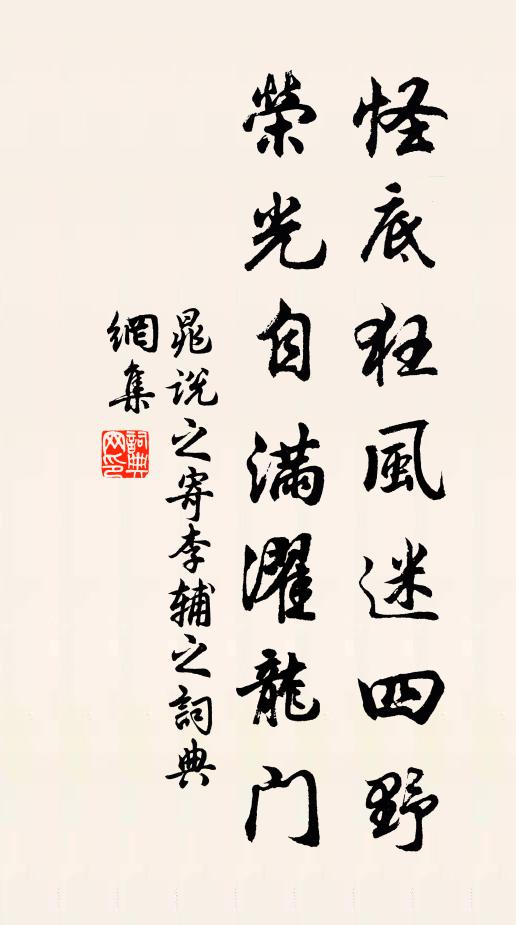 怪底狂風迷四野
榮光自滿濯龍门
晁說之寄李辅之詞典
網集
詞典网印